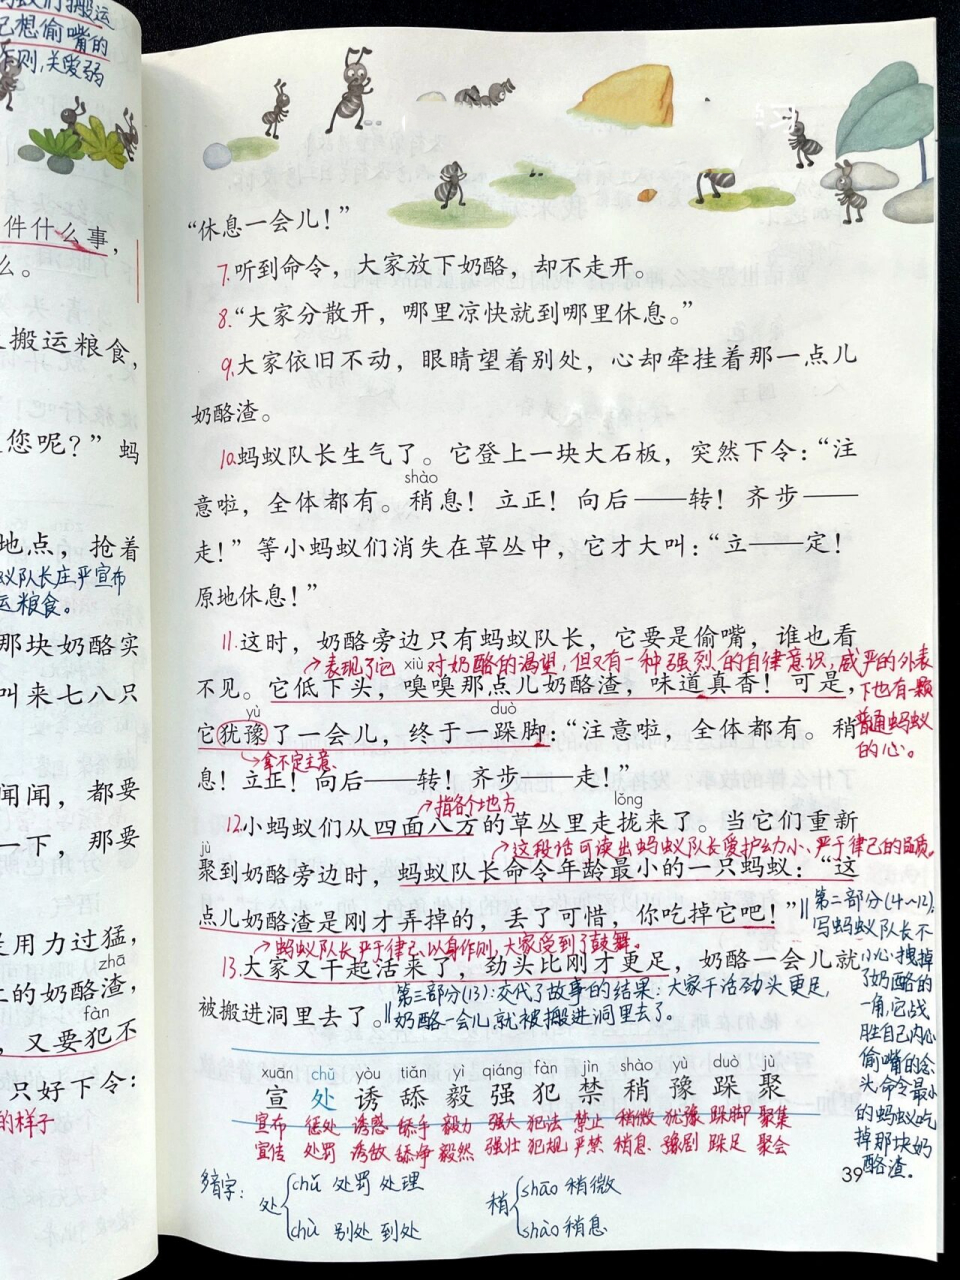 蚁们搬运
己想偷嘴的
作则,关爱弱
件什么事,
么。
搬运粮食,
您呢?”蚂
地点,抢着
蚁队长庄严宣布
运粮食。
那块奶酪实
叫来七八只
闻闻,都要
一下,那要
是用力过猛,
zhā
上的奶酪渣,
fàn
,又要犯不
只好下令:
的样子
“休息一会儿!”
7.听到命令,大家放下奶酪,却不走开。
8.“大家分散开,哪里凉快就到哪里休息。”
9.大家依旧不动,眼睛望着别处,心却牵挂着那一点儿
奶酪渣。
10.蚂蚁队长生气了。它登上一块大石板,突然下令:“注
shào
意啦,全体都有。稍息!立正!向后——转!齐步——
走!”等小蚂蚁们消失在草丛中,它才大叫:“立——定!
原地休息!”
11.这时,奶酪旁边只有蚂蚁队长,它要是偷嘴,谁也看
→表现了它对奶酪的渴望,但又有一种强烈的自律意识,威严的外表
下也有一颗
普通蚂蚁
的心。
xiù
不见。它低下头,嗅嗅那点儿奶酪渣,味道真香!可是,
yù duò
它犹豫了一会儿,终于一跺脚:“注意啦,全体都有。稍
→拿不定主意
息!立正!向后——转!齐步——走!”
→指各个地方
lǒng
12.小蚂蚁们从四面八方的草丛里走拢来了。当它们重新
→这段话可读出蚂蚁队长爱护幼小、严于律己的品质。
jù
聚到奶酪旁边时,蚂蚁队长命令年龄最小的一只蚂蚁:“这
点儿奶酪渣是刚才弄掉的,丢了可惜,你吃掉它吧!”
→蚂蚁队长严于律己,以身作则,大家受到了鼓舞。
13.大家又干起活来了,劲头比刚才更足,奶酪一会儿就
被搬进洞里去了。
第三部分(13):交代了故事的结果:大家干活劲头更足,
奶酪一会儿就被搬进洞里去了。
第二部分(4~12):
写蚂蚁队长不
小心拽掉
了奶酪的
一角,它战
胜自己内心
偷嘴的念
头,命令最小
的蚂蚁吃
掉那块奶
酪渣.
xuān chǔ yòu tiǎn yì qiáng fàn jìn shào yù duò jù
宣 处 诱 舔 毅 强 犯 禁 稍 豫 跺 聚
宣布 惩处 诱惑 舔手 毅力 强大 犯法 禁止 稍微 犹豫 跺脚 聚集
宣传 处罚 诱敌 舔净 毅然 强壮 犯规 严禁 稍息 豫剧 跺足 聚会
多音字: 处 chǔ 处罚 处理
chù 别处 到处
稍 shāo 稍微
shào 稍息
39